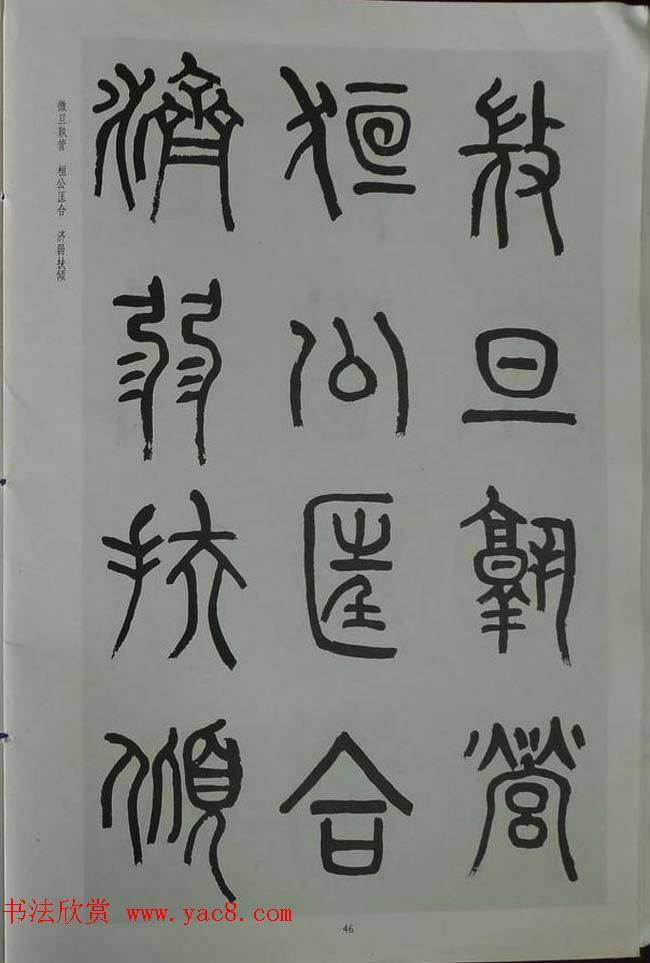 微旦孰营
桓公匡合
济弱扶倾
微旦孰营 桓公匡合 济弱扶倾
书法欣赏 www.yac8.com
46